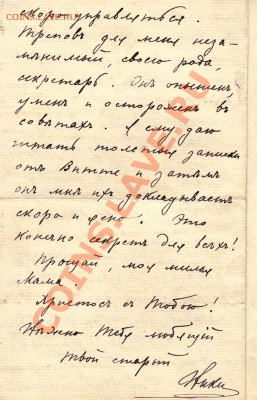 скоро управляться.
Треповъ для меня неза-
мѣнимый, своего рода,
секретарь. Онъ опытенъ,
уменъ и остороженъ въ
совѣтахъ. Я ему даю
читать толстыя записки
отъ Витте и затѣмъ
онъ мнѣ ихъ докладываетъ
скоро и ясно. Это
конечно секретъ для всѣхъ!
Прощай, моя милая
Мама.
Христосъ съ Тобою!
Нѣжно Тебя любящій
твой старый
Ники
COINSS.LAVE.RU